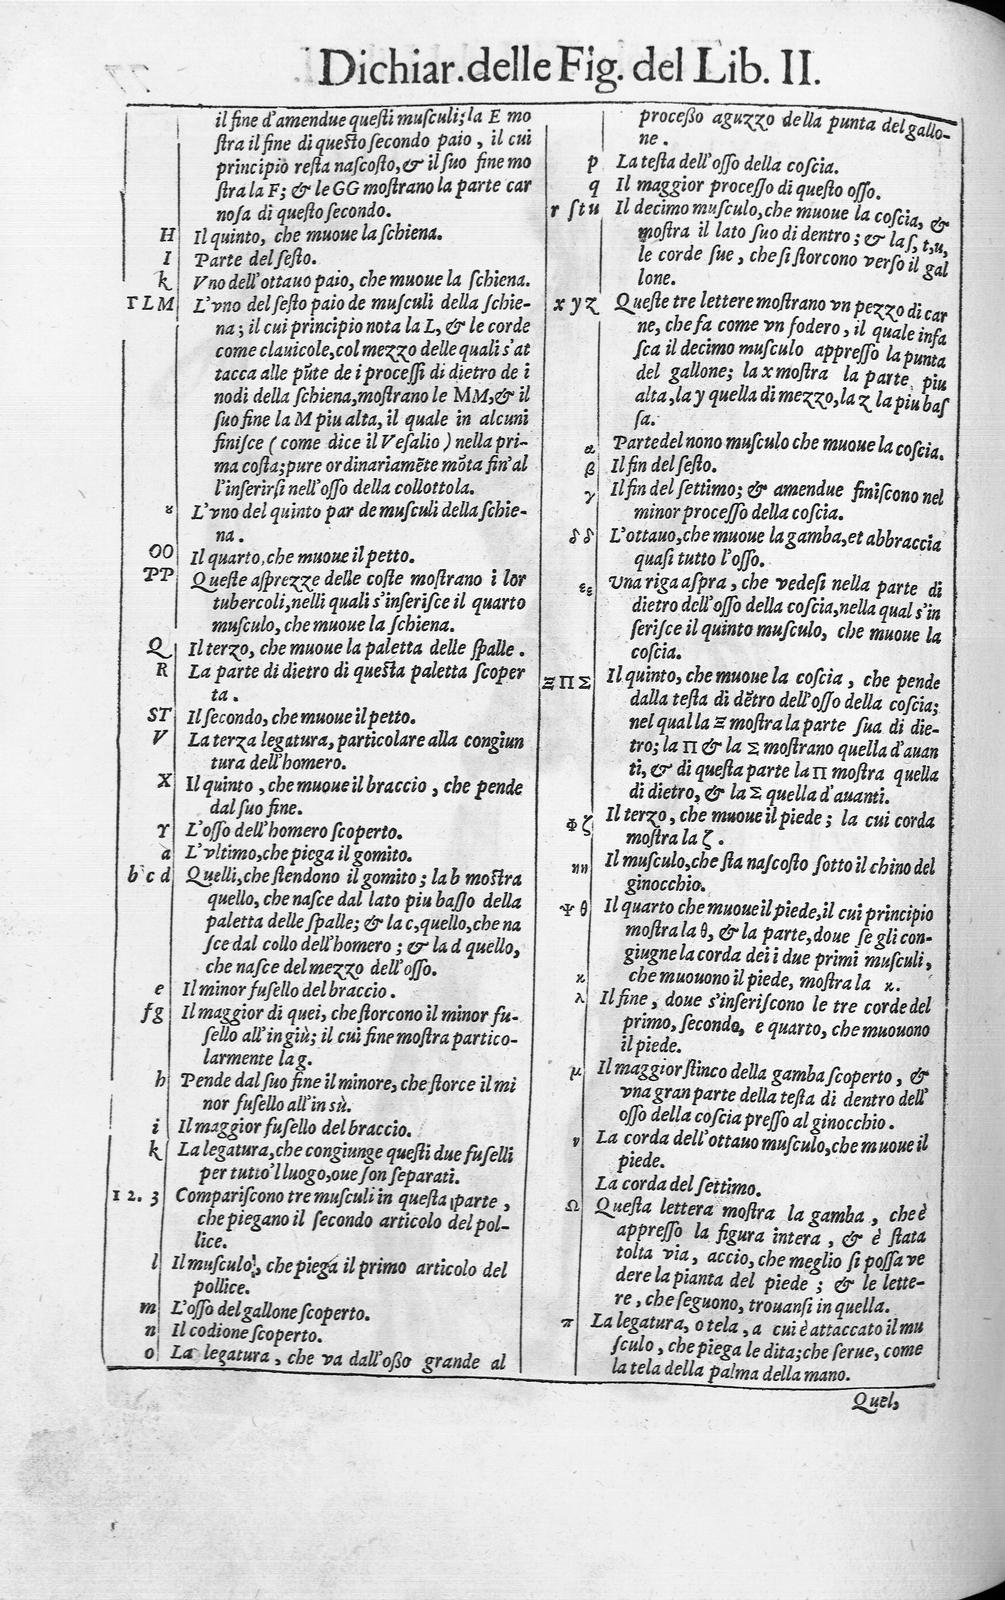 Dichiar. delle Fig. del Lib. II.
il fine d'amendue questi musculi; la E mo
stra il fine di questo secondo paio, il cui
principio resta nascosto, & il suo fine mo
stra la F; & le GG mostrano la parte car
nosa di questo secondo.
H Il quinto, che muoue la schiena.
I Parte del sesto.
k Vno dell'ottauo paio, che muoue la schiena.
Γ L M L'vno del sesto paio de musculi della schie-
na; il cui principio nota la L, & le corde
come clauicole, col mezzo delle quali s'at
tacca alle pũte de i processi di dietro de i
nodi della schiena, mostrano le MM, & il
suo fine la M piu alta, il quale in alcuni
finisce (come dice il Vesalio) nella pri-
ma costa; pure ordinariamẽte mõta fin'al
l'inserirsi nell'osso della collottola.
४ L'vno del quinto par de musculi della schie-
na.
OO Il quarto, che muoue il petto.
PP Queste asprezze delle coste mostrano i lor
tubercoli, nelli quali s'inserisce il quarto
musculo, che muoue la schiena.
Q Il terzo, che muoue la paletta delle spalle.
R La parte di dietro di questa paletta scoper
ta.
ST Il secondo, che muoue il petto.
V La terza legatura, particolare alla congiun
tura dell'homero.
X Il quinto, che muoue il braccio, che pende
dal suo fine.
Y L'osso dell'homero scoperto.
a L'vltimo, che piega il gomito.
b c d Quelli, che stendono il gomito; la b mostra
quello, che nasce dal lato piu basso della
paletta delle spalle; & la c, quello, che na
sce dal collo dell'homero; & la d quello,
che nasce del mezzo dell'osso.
e Il minor fusello del braccio.
fg Il maggior di quei, che storcono il minor fu-
sello all'in giù; il cui fine mostra partico-
larmente la g.
h Pende dal suo fine il minore, che storce il mi
nor fusello all'in sù.
i Il maggior fusello del braccio.
k La legatura, che congiunge questi due fuselli
per tutto'l luogo, oue son separati.
1 2. 3 Compariscono tre musculi in questa parte,
che piegano il secondo articolo del pol-
lice.
l Il musculo, che piega il primo articolo del
pollice.
m L'osso del gallone scoperto.
n Il codione scoperto.
o La legatura, che va dall'osso grande al
processo aguzzo della punta del gallo-
ne.
p La testa dell'osso della coscia.
q Il maggior processo di questo osso.
r s t u Il decimo musculo, che muoue la coscia, &
mostra il lato suo di dentro; & la s, t, u,
le corde sue, che si storcono verso il gal
lone.
x y z Queste tre lettere mostrano vn pezzo di car
ne, che fa come vn fodero, il quale infa
sca il decimo musculo appresso la punta
del gallone; la x mostra la parte piu
alta, la y quella di mezzo, la z la piu bas
sa.
α Parte del nono musculo che muoue la coscia.
β Il fin del sesto.
γ Il fin del settimo; & amendue finiscono nel
minor processo della coscia.
δδ L'ottauo, che muoue la gamba, et abbraccia
quasi tutto l'osso.
εε Una riga aspra, che vedesi nella parte di
dietro dell'osso della coscia, nella qual s'in
serisce il quinto musculo, che muoue la
coscia.
Ξ Π Σ Il quinto, che muoue la coscia, che pende
dalla testa di dẽtro dell'osso della coscia;
nel qual la Ξ mostra la parte sua di die-
tro; la Π & la Σ mostrano quella d'auan
ti, & di questa parte la Π mostra quella
di dietro, & la Σ quella d'auanti.
Φ ζ Il terzo, che muoue il piede; la cui corda
mostra la ζ.
ηη Il musculo, che sta nascosto sotto il chino del
ginocchio.
Ψ θ Il quarto che muoue il piede, il cui principio
mostra la θ, & la parte, doue se gli con-
giugne la corda dei i due primi musculi,
κ che muouono il piede, mostra la κ.
λ Il fine, doue s'inseriscono le tre corde del
primo, secondo, e quarto, che muouono
il piede.
μ Il maggior stinco della gamba scoperto, &
vna gran parte della testa di dentro dell'
osso della coscia presso al ginocchio.
ν La corda dell'ottauo musculo, che muoue il
piede.
La corda del settimo.
Ω Questa lettera mostra la gamba, che è
appresso la figura intera, & è stata
tolta via, accio, che meglio si possa ve
dere la pianta del piede; & le lette-
re, che seguono, trouansi in quella.
π La legatura, o tela, a cui è attaccato il mu
sculo, che piega le dita; che serue, come
la tela della palma della mano.
Quel,